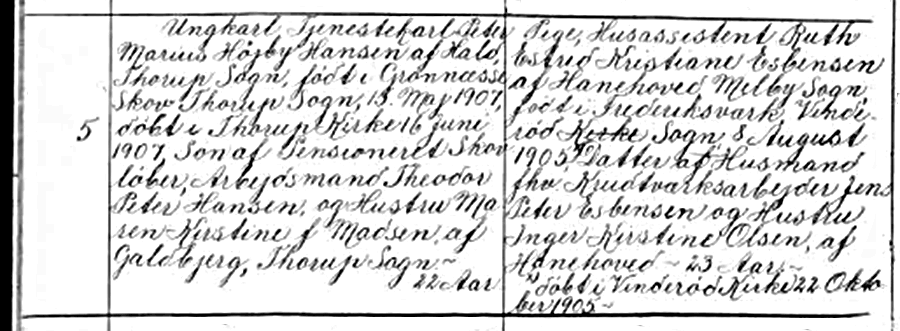 5
Ungkarl, Tjenestekarl Peter
Marius Højby Hansen af Hald,
Thorup Sogn, født i Grønnæsse
Skov Thorup Sogn, 15. Maj 1907,
døbt i Thorup Kirke 16 Juni
1907, Søn af Pensioneret Skov
løber, Arbejdsmand Theodor
Peter Hansen, og Hustru Ma
ren Kirstine f Madsen, af
Galdbjerg, Thorup Sogn. ~
22 Aar
Pige, Husassistent Ruth
Estrid Kristiane Esbensen
af Hanehoved, Melby Sogn
født i Frederiksværk, Vinde-
rød Kirke Sogn, 8 August
1905, Datter af Husmand
fhv. Krudtværksarbejder Jens
Peter Esbensen og Hustru
Inger Kirstine Olsen, af
Hanehoved ~ 23 Aar. ~
døbt i Vinderød Kirke 22 Okto
ber 1905 ~